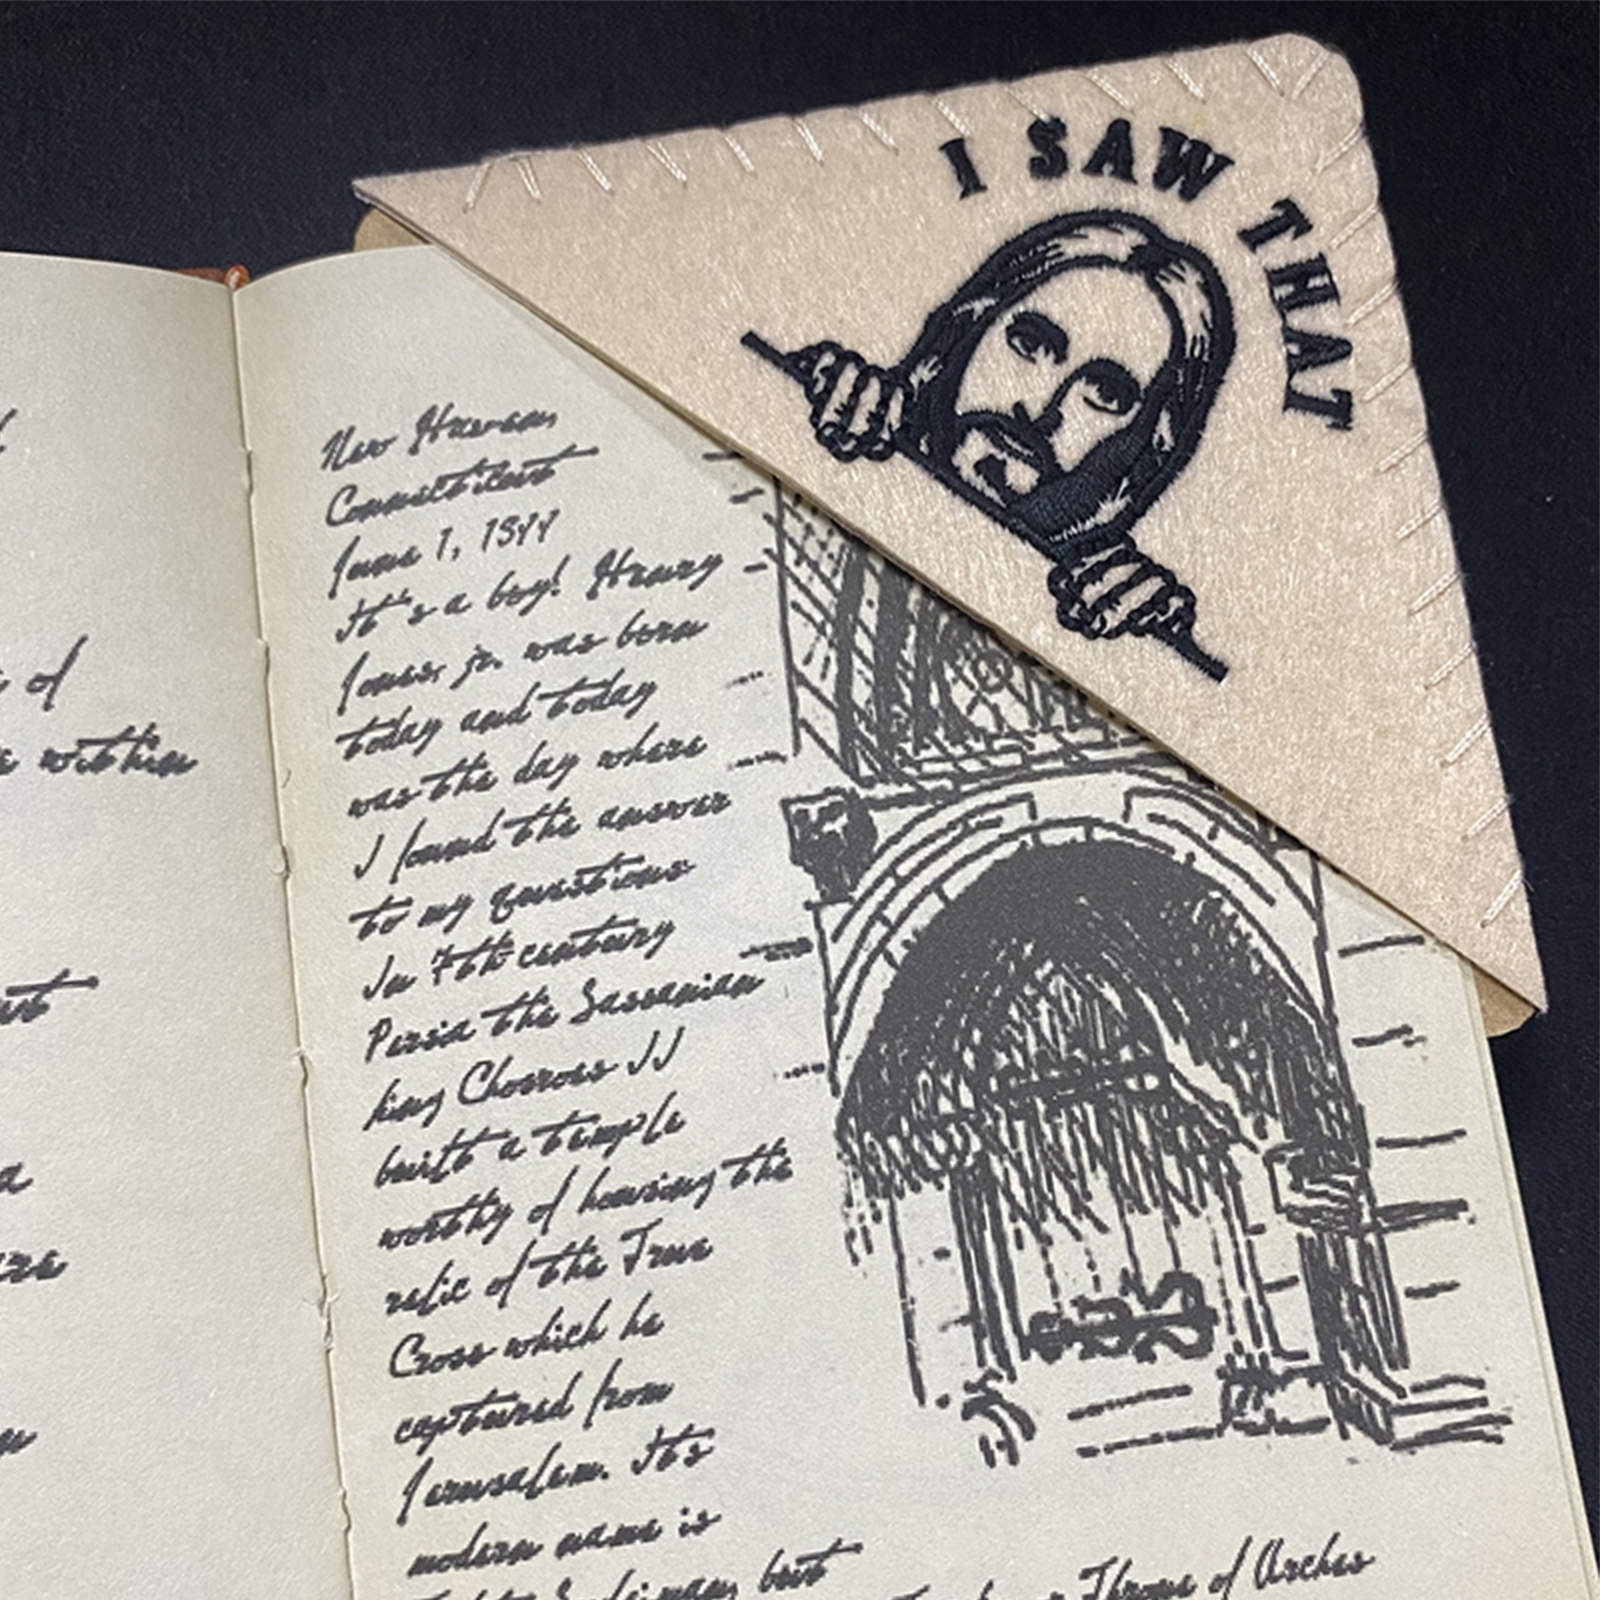 I SAW THAT
of
within
New Haven,
Connecticut
June 1, 1844
It's a boy! Henry
Jones, jr. was born
today and today
was the day where
I found the answer
to my questions
In 7th century
Persia the Sassanian
king Chosroes II
built a temple
worthy of housing the
relic of the True
Cross which he
captured from
Jerusalem. It's
modern name is
but
Throne of Arches